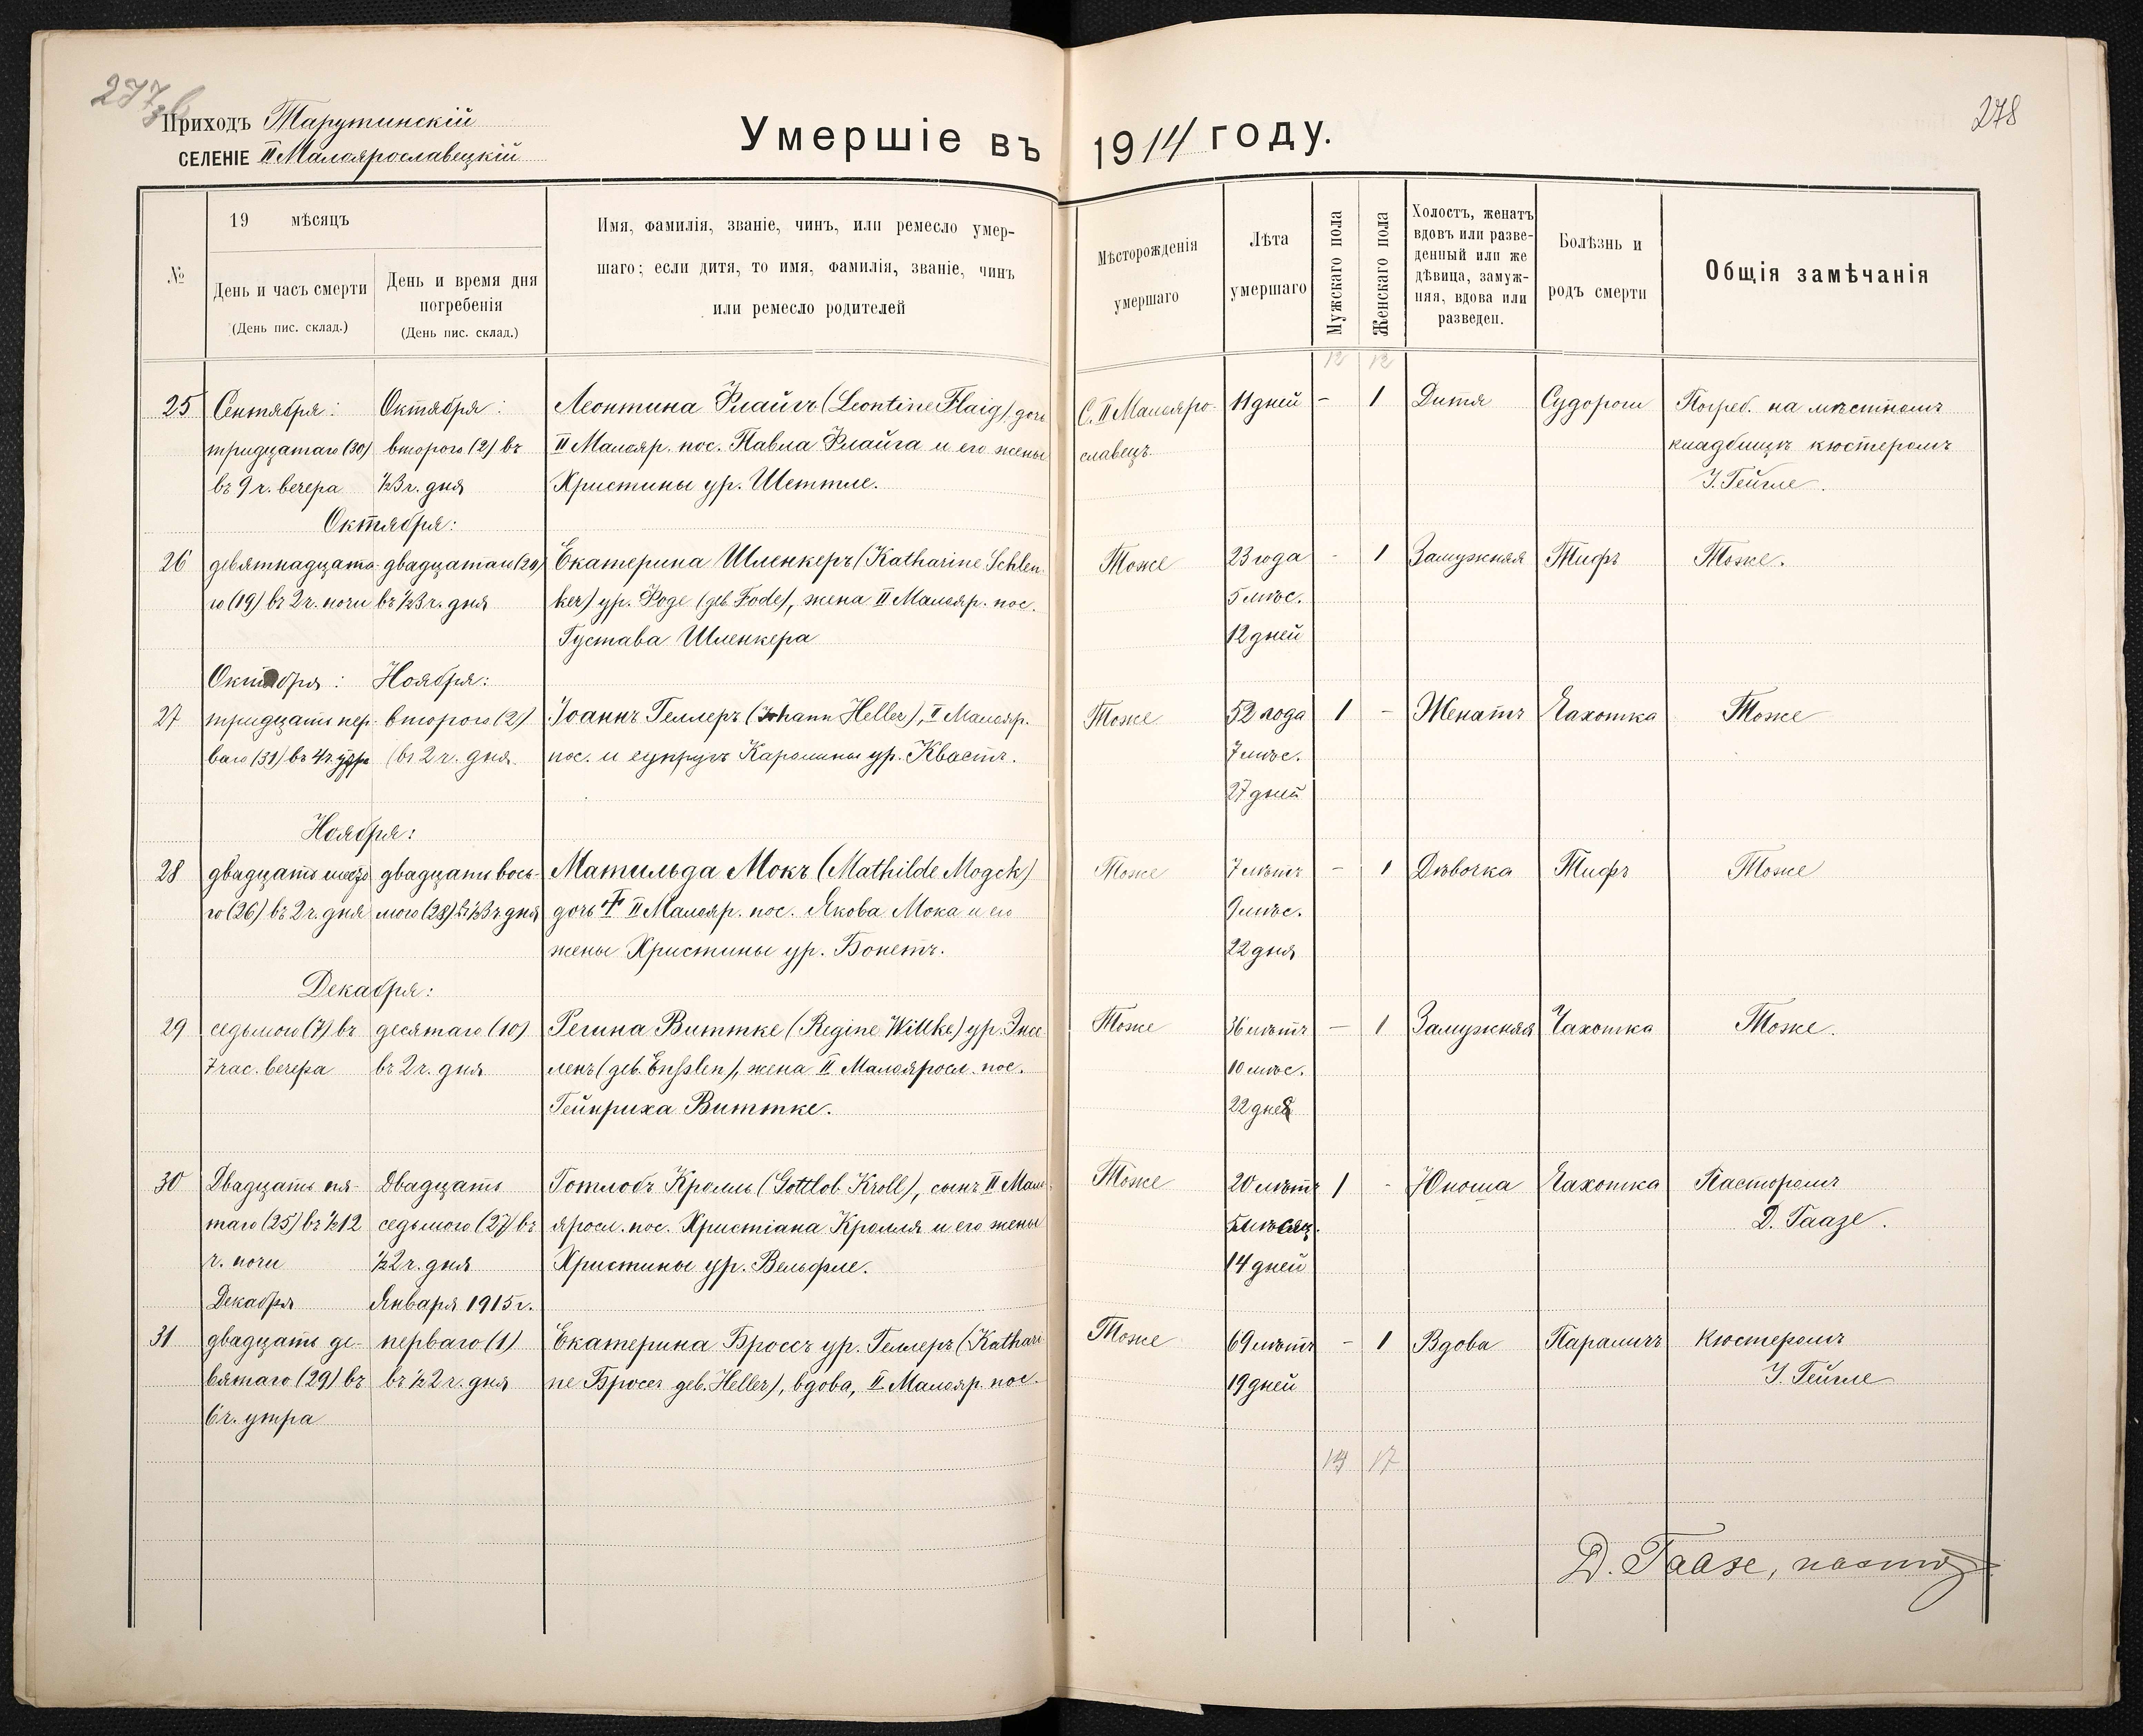 277
278
Приходъ Тарутинскій
СЕЛЕНІЕ II Малоярославецкій
Умершіе въ 1914 году.
№
19 мѣсяцъ
День и часъ смерти
(День пис. склад.)
День и время дня
погребенія
(День пис. склад.)
Имя, фамилія, званіе, чинъ, или ремесло умер-
шаго; если дитя, то имя, фамилія, званіе, чинъ
или ремесло родителей
Мѣсторожденія
умершаго
Лѣта
умершаго
Мужскаго пола
Женскаго пола
Холостъ, женатъ
вдовъ или разве-
денный или же
дѣвица, замуж-
няя, вдова или
разведен.
Болѣзнь и
родъ смерти
Общія замѣчанія
12 12
25 Сентября: Октября: Леонтина Флайгъ (Leontine Flaig), дочь С. II Малояро- 11 дней – 1 Дитя Судороги Погреб. на мѣстномъ
тридцатаго (30) второго (2) въ II Малояр. пос. Павла Флайга и его жены славец. кладбищѣ кюстеромъ
въ 9 ч. вечера ½3 ч. дня Христины ур. Шеттле. І. Гейгле.
Октября:
26 девятнадцата- двадцатаго (20) Екатерина Шленкеръ (Katharine Schlen- Тоже 23 года - 1 Замужняя Тифъ Тоже.
го (19) въ 2 ч. ночи въ ½3 ч. дня ker) ур. Фоде (geb. Fode), жена II Малояр. пос. 5 мѣс.
Густава Шленкера 12 дней
Октября: Ноября:
27 тридцать пер- второго (2) Іоаннъ Геллеръ (Johann Heller), II Малояр. Тоже 52 года 1 – Женатъ Чахотка Тоже
ваго (31) въ 4 ч. утра въ 2 ч. дня. пос. и супругъ Каролины ур. Квастъ. 7 мѣс.
27 дней
Ноября:
28 двадцать шесто- двадцать вось- Матильда Мокъ (Mathilde Mogck) Тоже 7 лѣтъ – 1 Дѣвочка Тифъ Тоже
го (26) въ 2 ч. дня мого (28) въ ½3 ч. дня дочь † II Малояр. пос. Якова Мока и его 9 мѣс.
жены Христины ур. Бонетъ. 22 дня
Декабря:
29 седьмого (7) въ десятаго (10) Регина Виттке (Regine Wittke) ур. Энсс- Тоже 36 лѣтъ – 1 Замужняя Чахотка Тоже.
7 час. вечера въ 2 ч. дня ленъ (geb. Ensslen), жена II Малояросл. пос. 10 мѣс.
Гейнриха Виттке. 22 дней
30 Двадцать пя- Двадцать Готлобъ Кролль (Gottlob Kroll), сынъ II Мало- Тоже 20 лѣтъ 1 - Юноша Чахотка Пасторомъ
таго (25) въ ½12 седьмого (27) въ яросл. пос. Христіана Кролля и его жены 5 мѣсяц. Д. Гаазе.
ч. ночи ½2 ч. дня Христины ур. Вельфле. 14 дней
Декабря Января 1915 г.
31 двадцать де- перваго (1) Екатерина Броссъ ур. Геллеръ (Kathari- Тоже 69 лѣтъ – 1 Вдова Параличъ Кюстеромъ
вятаго (29) въ въ ½2 ч. дня ne Броссъ geb. Heller), вдова, II Малояр. пос. 19 дней І. Гейгле
6 ч. утра
14 17
Д. Гаазе, пастор